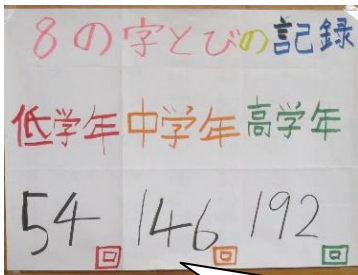 8の字とびの記録
低学年 中学年 高学年
54回 146回 192回